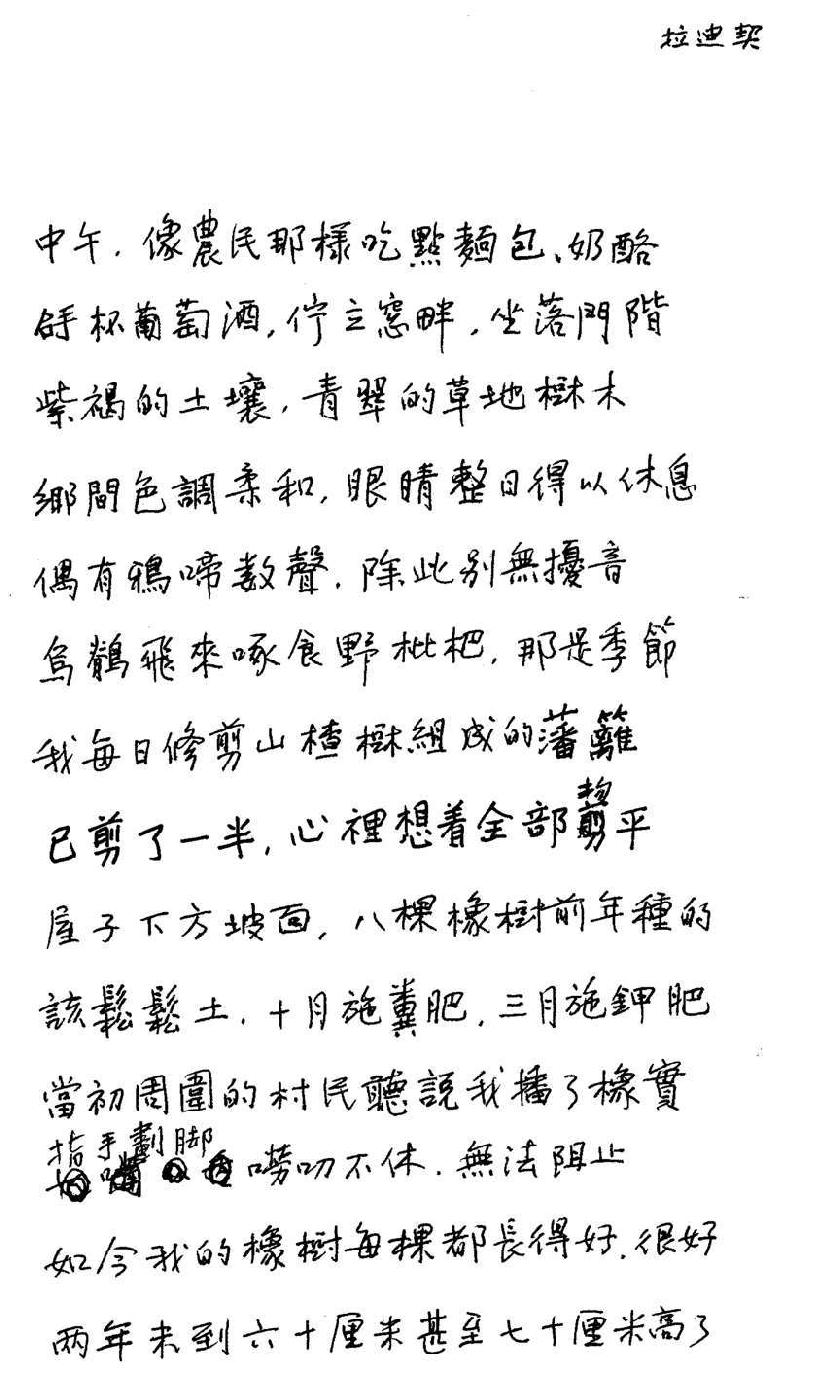 拉迪契
中午．像農民那樣吃點麵包、奶酪
舒杯葡萄酒，佇立窓畔，坐落門階
紫褐的土壤，青翠的草地樹木
鄉間色調柔和，眼睛整日得以休息
偶有鴉啼數聲．除此別無擾音
烏鶇飛來啄食野枇杷，那是季節
我每日修剪山楂樹組成的藩籬
已剪了一半，心裡想着全部剪平
屋子下方坡面，八棵橡樹前年種的
該鬆鬆土．十月施糞肥，三月施鉀肥
當初周圍的村民聽說我播了橡實
指手劃脚
嘮叨不休．無法阻止
如今我的橡樹每棵都長得好．很好
两年未到六十厘米甚至七十厘米高了